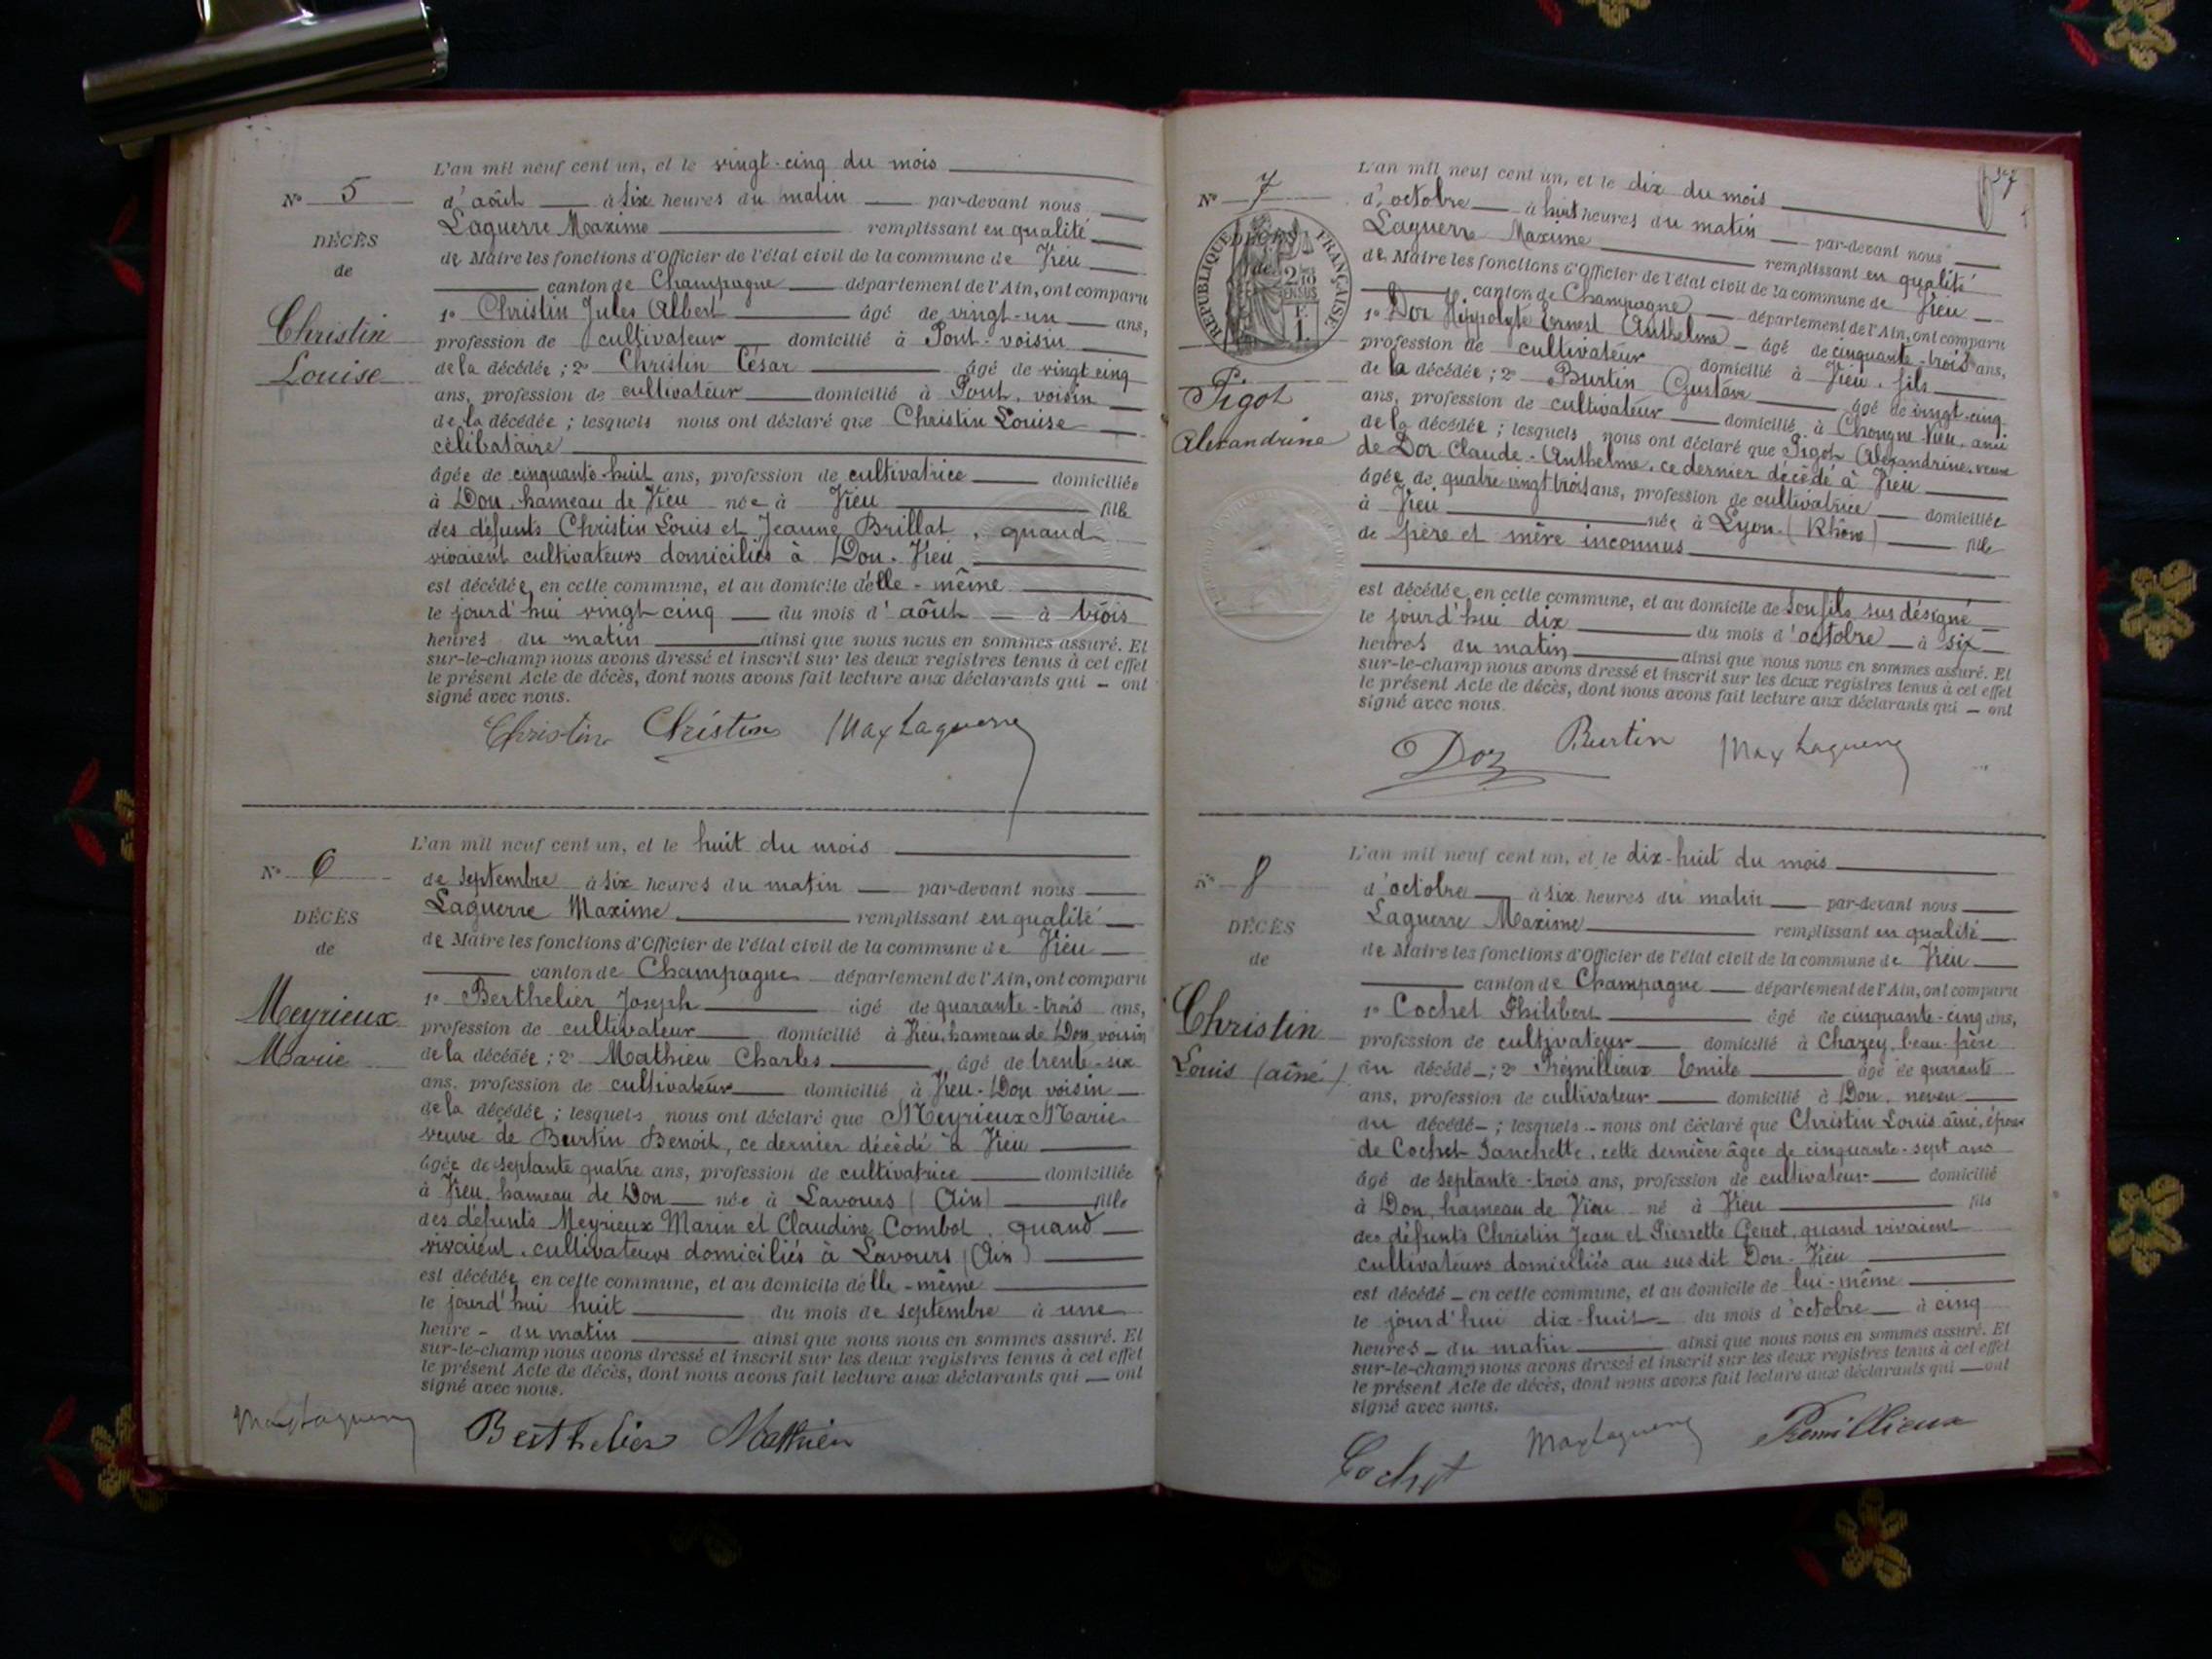 L'an mil neuf cent un, et le vingt-cinq du mois
N° 5
d'août à six heures du matin par-devant nous
Laguerre Maxime remplissant en qualité
DÉCÈS
de Maire les fonctions d'Officier de l'état civil de la commune de Vieu
de
canton de Champagne département de l'Ain, ont comparu
1° Christin Jules Albert âgé de vingt-un ans,
Christin
profession de cultivateur domicilié à Pont, voisin
Louise
de la décédée ; 2° Christin César âgé de vingt cinq
ans, profession de cultivateur domicilié à Pont, voisin
de la décédée ; lesquels nous ont déclaré que Christin Louise
célibataire
âgée de cinquante-huit ans, profession de cultivatrice domiciliée
à Don, hameau de Vieu née à Vieu fille
des défunts Christin Louis et Jeanne Brillat, quand
vivaient cultivateurs domiciliés à Don-Vieu
est décédée en cette commune, et au domicile d'elle-même
le jourd'hui vingt cinq du mois d'août à trois
heures du matin ainsi que nous nous en sommes assuré. Et
sur-le-champ nous avons dressé et inscrit sur les deux registres tenus à cet effet
le présent Acte de décès, dont nous avons fait lecture aux déclarants qui - ont
signé avec nous.
Christin Christin Max Laguerre
L'an mil neuf cent un, et le huit du mois
N° 6
de septembre à six heures du matin par-devant nous
Laguerre Maxime remplissant en qualité
DÉCÈS
de Maire les fonctions d'Officier de l'état civil de la commune de Vieu
de
canton de Champagne département de l'Ain, ont comparu
1° Berthelier Joseph âgé de quarante-trois ans,
Meyrieux
profession de cultivateur domicilié à Vieu, hameau de Don, voisin
Marie
de la décédée ; 2° Mathieu Charles âgé de trente-six
ans, profession de cultivateur domicilié à Vieu-Don voisin
de la décédée ; lesquels nous ont déclaré que Meyrieux Marie
veuve de Burtin Benoit, ce dernier décédé à Vieu
âgée de septante quatre ans, profession de cultivatrice domiciliée
à Vieu, hameau de Don née à Lavours (Ain) fille
des défunts Meyrieux Marin et Claudine Combot, quand
vivaient, cultivateurs domiciliés à Lavours (Ain)
est décédée en cette commune, et au domicile d'elle-même
le jourd'hui huit du mois de septembre à une
heure - du matin ainsi que nous nous en sommes assuré. Et
sur-le-champ nous avons dressé et inscrit sur les deux registres tenus à cet effet
le présent Acte de décès, dont nous avons fait lecture aux déclarants qui - ont
signé avec nous.
Max Laguerre Berthelier Mathieu
L'an mil neuf cent un, et le dix du mois
N° 7
d'octobre à huit heures du matin par-devant nous
Laguerre Maxime remplissant en qualité
DÉCÈS
de
RÉPUBLIQUE FRANÇAISE
de Maire les fonctions d'Officier de l'état civil de la commune de Vieu
canton de Champagne département de l'Ain, ont comparu
1° Dor Hippolyte Ernest Anthelme âgé de cinquante-trois ans,
profession de cultivateur domicilié à Vieu, fils
Pigot
de la décédée ; 2° Burtin Gustave âgé de vingt-cinq
Alexandrine
ans, profession de cultivateur domicilié à Chongne Vieu, ami
de la décédée ; lesquels nous ont déclaré que Pigot Alexandrine, veuve
de Dor Claude-Anthelme, ce dernier décédé à Vieu
âgée de quatre vingt trois ans, profession de cultivatrice domiciliée
à Vieu née à Lyon (Rhône) fille
de père et mère inconnus
est décédée en cette commune, et au domicile de son fils sus désigné
le jourd'hui dix du mois d'octobre à six
heures du matin ainsi que nous nous en sommes assuré. Et
sur-le-champ nous avons dressé et inscrit sur les deux registres tenus à cet effet
le présent Acte de décès, dont nous avons fait lecture aux déclarants qui - ont
signé avec nous.
Dor Burtin Max Laguerre
L'an mil neuf cent un, et le dix-huit du mois
N° 8
d'octobre à six heures du matin par-devant nous
Laguerre Maxime remplissant en qualité
DÉCÈS
de Maire les fonctions d'Officier de l'état civil de la commune de Vieu
de
canton de Champagne département de l'Ain, ont comparu
1° Cochet Philibert âgé de cinquante-cinq ans,
Christin
profession de cultivateur domicilié à Chazey, beau-frère
Louis (aîné)
du décédé - ; 2° Rémillieux Emile âgé de quarante
ans, profession de cultivateur domicilié à Don, neveu
du décédé - ; lesquels - nous ont déclaré que Christin Louis aîné, époux
de Cochet Fanchette, cette dernière âgée de cinquante-sept ans
âgé de septante-trois ans, profession de cultivateur domicilié
à Don, hameau de Vieu né à Vieu fils
des défunts Christin Jean et Pierrette Genet, quand vivaient
cultivateurs domiciliés au susdit Don-Vieu
est décédé - en cette commune, et au domicile de lui-même
le jourd'hui dix-huit du mois d'octobre à cinq
heures - du matin ainsi que nous nous en sommes assuré. Et
sur-le-champ nous avons dressé et inscrit sur les deux registres tenus à cet effet
le présent Acte de décès, dont nous avons fait lecture aux déclarants qui - ont
signé avec nous.
Cochet Max Laguerre Remillieux